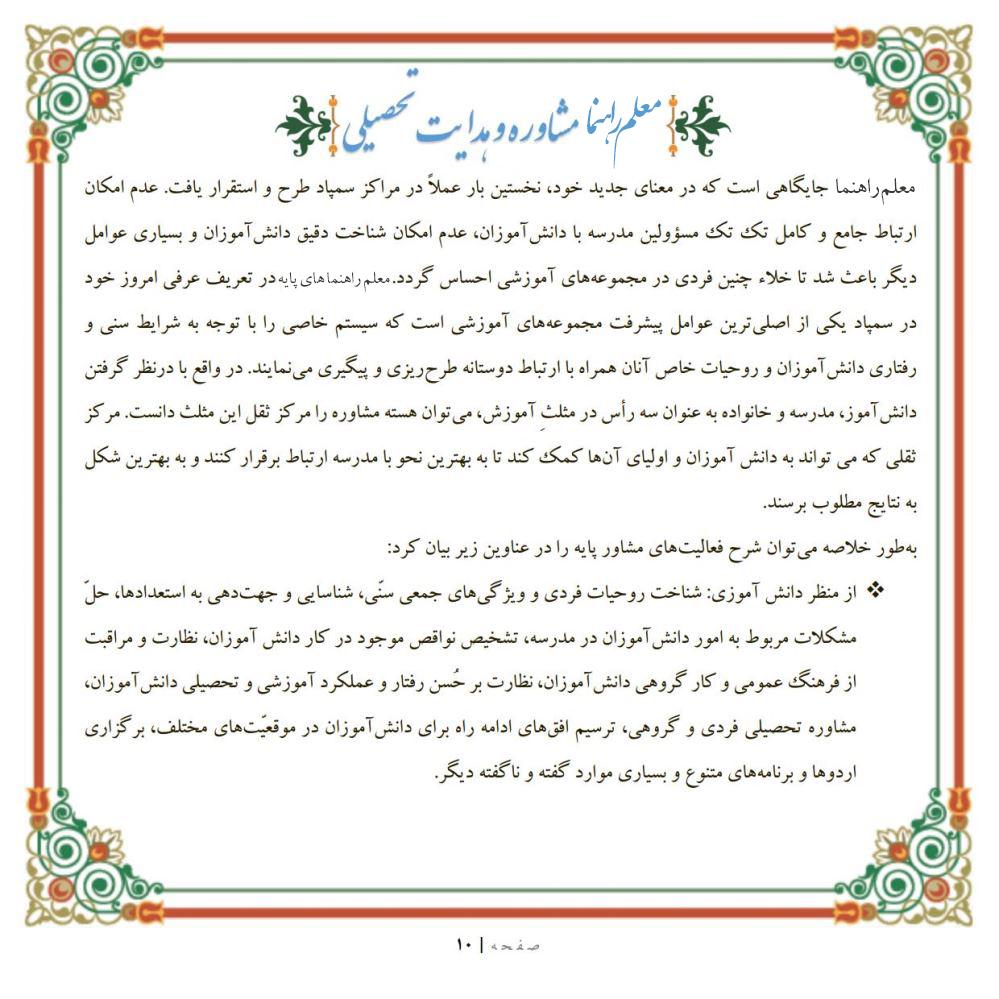 معلم راهنما مشاوره و هدایت تحصیلی
معلم‌راهنما جایگاهی است که در معنای جدید خود، نخستین بار عملاً در مراکز سمپاد طرح و استقرار یافت. عدم امکان
ارتباط جامع و کامل تک تک مسؤولین مدرسه با دانش‌آموزان، عدم امکان شناخت دقیق دانش‌آموزان و بسیاری عوامل
دیگر باعث شد تا خلاء چنین فردی در مجموعه‌های آموزشی احساس گردد. معلم راهنماهای پایه در تعریف عرفی امروز خود
در سمپاد یکی از اصلی‌ترین عوامل پیشرفت مجموعه‌های آموزشی است که سیستم خاصی را با توجه به شرایط سنی و
رفتاری دانش‌آموزان و روحیات خاص آنان همراه با ارتباط دوستانه طرح‌ریزی و پیگیری می‌نمایند. در واقع با درنظر گرفتن
دانش‌آموز، مدرسه و خانواده به عنوان سه رأس در مثلثِ آموزش، می‌توان هسته مشاوره را مرکز ثقل این مثلث دانست. مرکز
ثقلی که می تواند به دانش آموزان و اولیای آن‌ها کمک کند تا به بهترین نحو با مدرسه ارتباط برقرار کنند و به بهترین شکل
به نتایج مطلوب برسند.
به‌طور خلاصه می‌توان شرح فعالیت‌های مشاور پایه را در عناوین زیر بیان کرد:
❖ از منظر دانش آموزی: شناخت روحیات فردی و ویژگی‌های جمعی سنّی، شناسایی و جهت‌دهی به استعدادها، حلّ
مشکلات مربوط به امور دانش‌آموزان در مدرسه، تشخیص نواقص موجود در کار دانش آموزان، نظارت و مراقبت
از فرهنگ عمومی و کار گروهی دانش‌آموزان، نظارت بر حُسن رفتار و عملکرد آموزشی و تحصیلی دانش‌آموزان،
مشاوره تحصیلی فردی و گروهی، ترسیم افق‌های ادامه راه برای دانش‌آموزان در موقعیّت‌های مختلف، برگزاری
اردوها و برنامه‌های متنوع و بسیاری موارد گفته و ناگفته دیگر.
صفحه | ۱۰